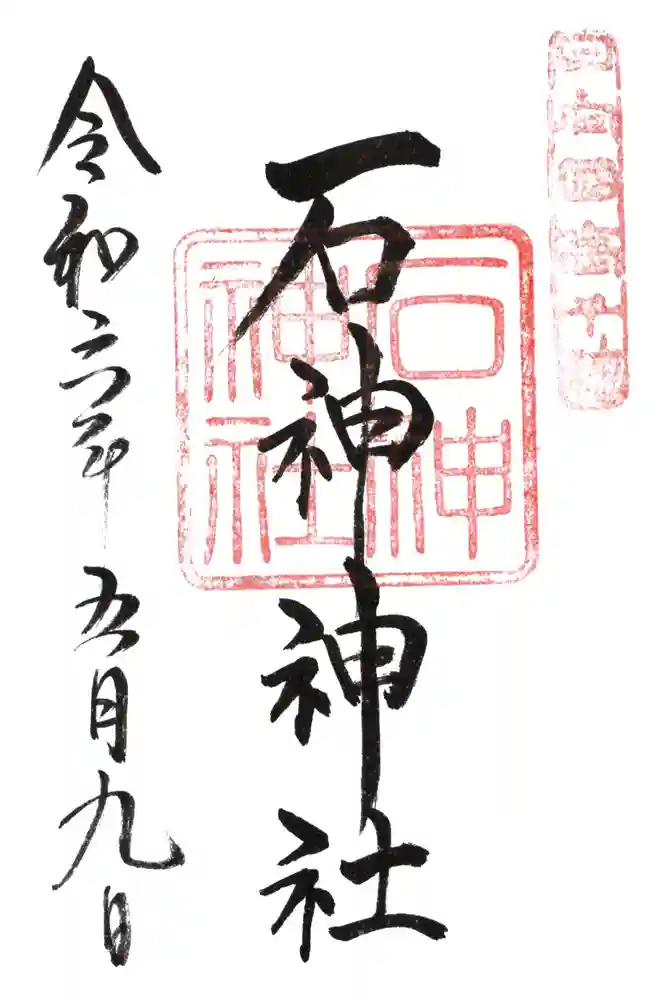 石神神社
石神神社
令和六年五月九日